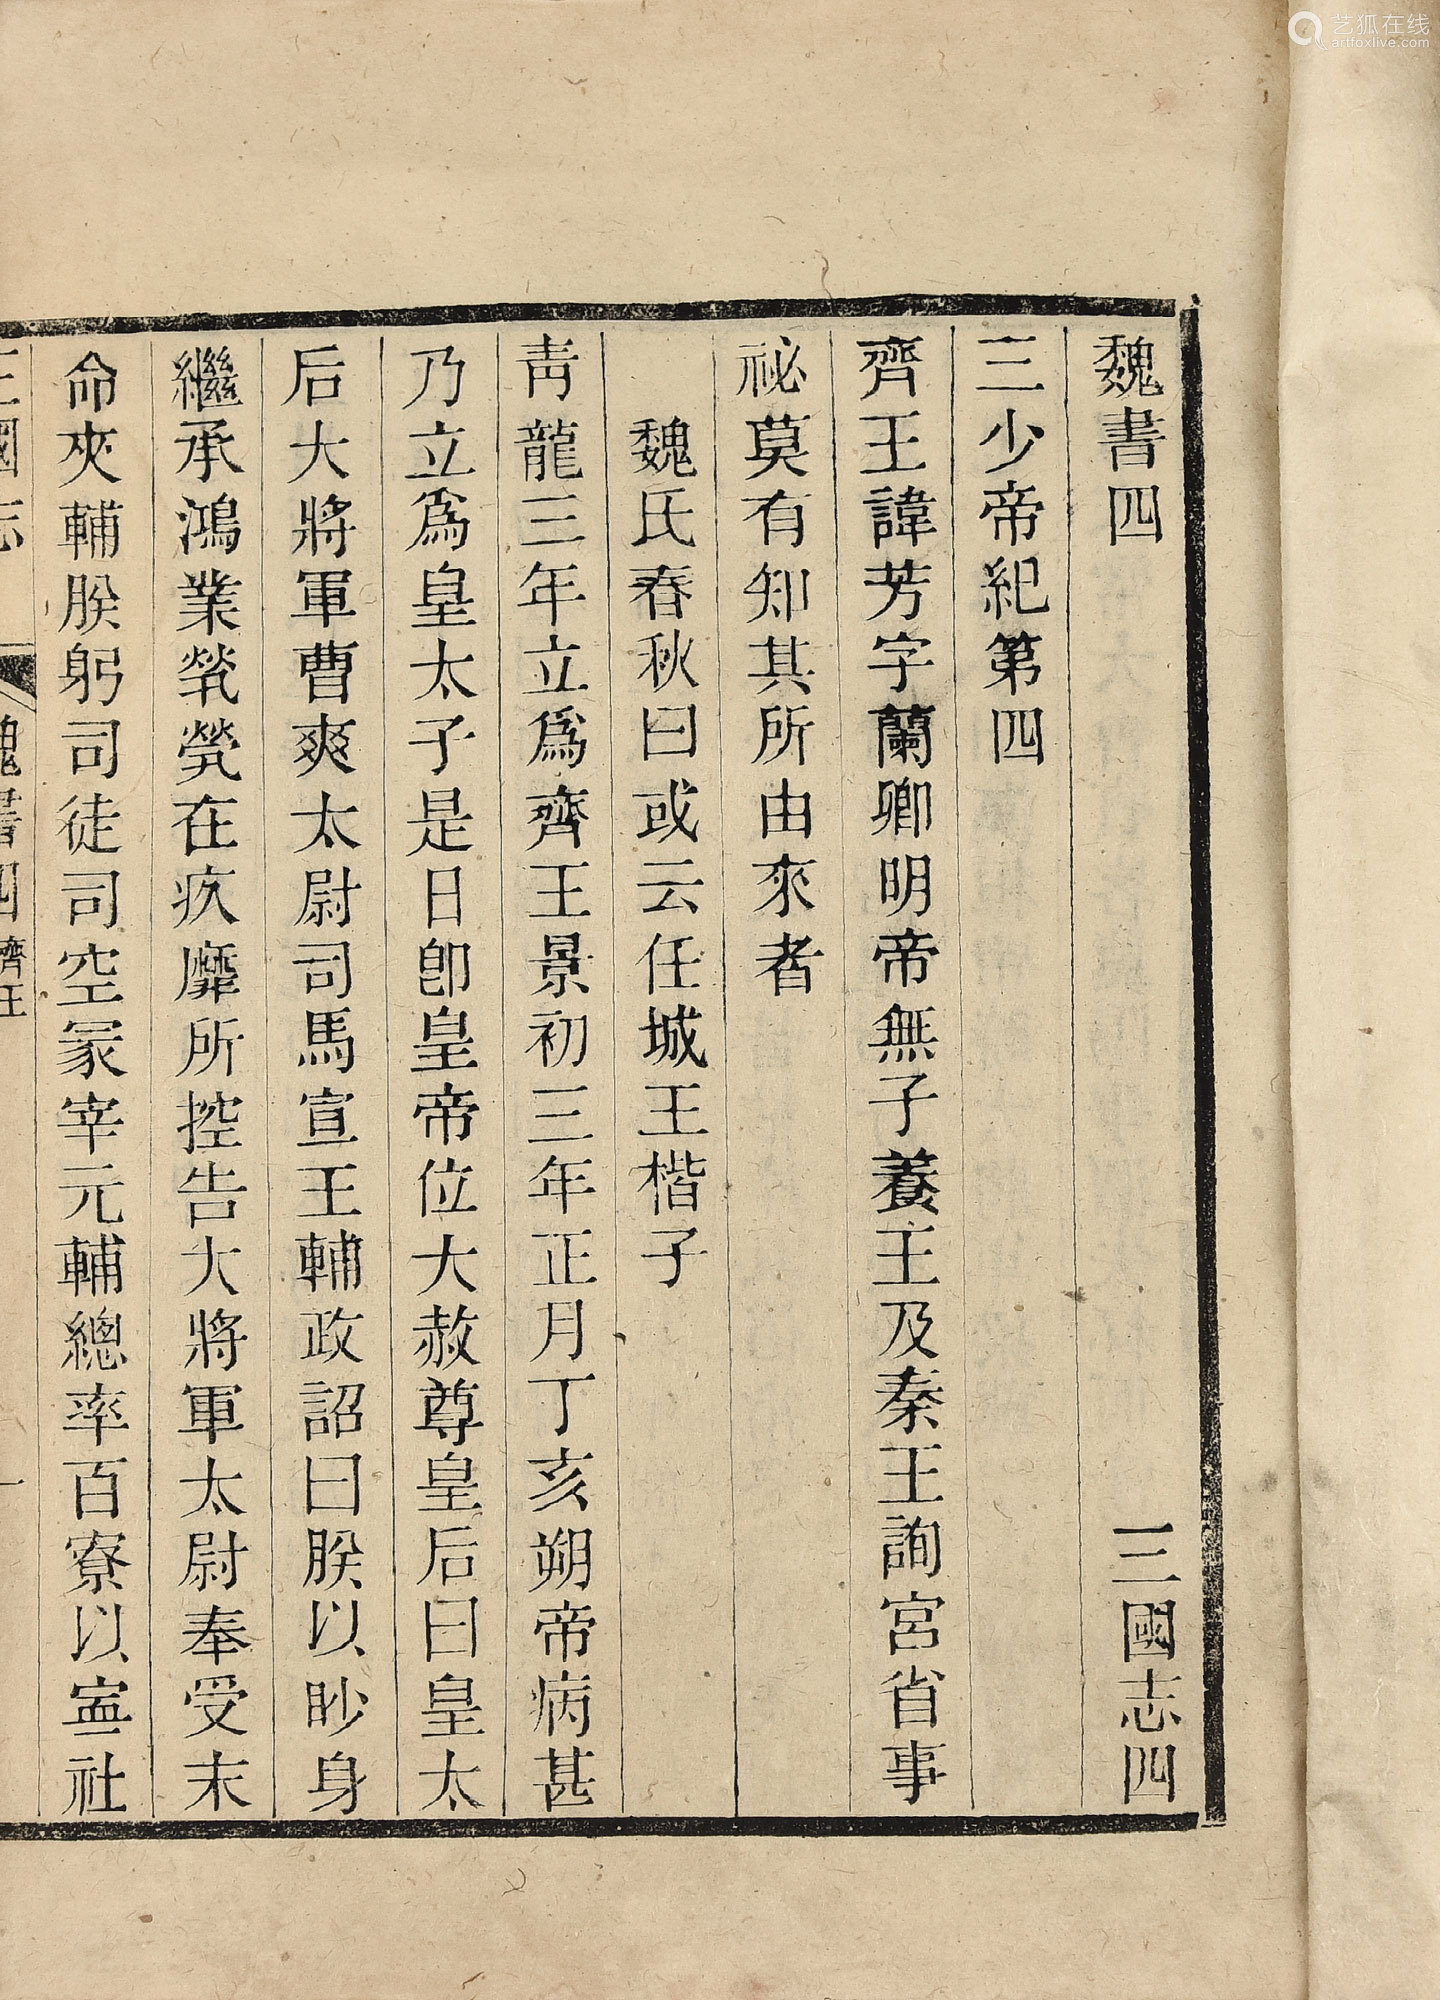 魏書四 三國志四
三少帝紀第四
齊王諱芳字蘭卿明帝無子養王及秦王詢宮省事
祕莫有知其所由來者
魏氏春秋曰或云任城王楷子
靑龍三年立爲齊王景初三年正月丁亥朔帝病甚
乃立爲皇太子是日卽皇帝位大赦尊皇后曰皇太
后大將軍曹爽太尉司馬宣王輔政詔曰朕以眇身
繼承鴻業煢煢在疚靡所控告大將軍太尉奉受末
命夾輔朕躬司徒司空冢宰元輔總率百寮以寍社
三國志 魏書四 齊王 一
艺狐在线
artfoxlive.com